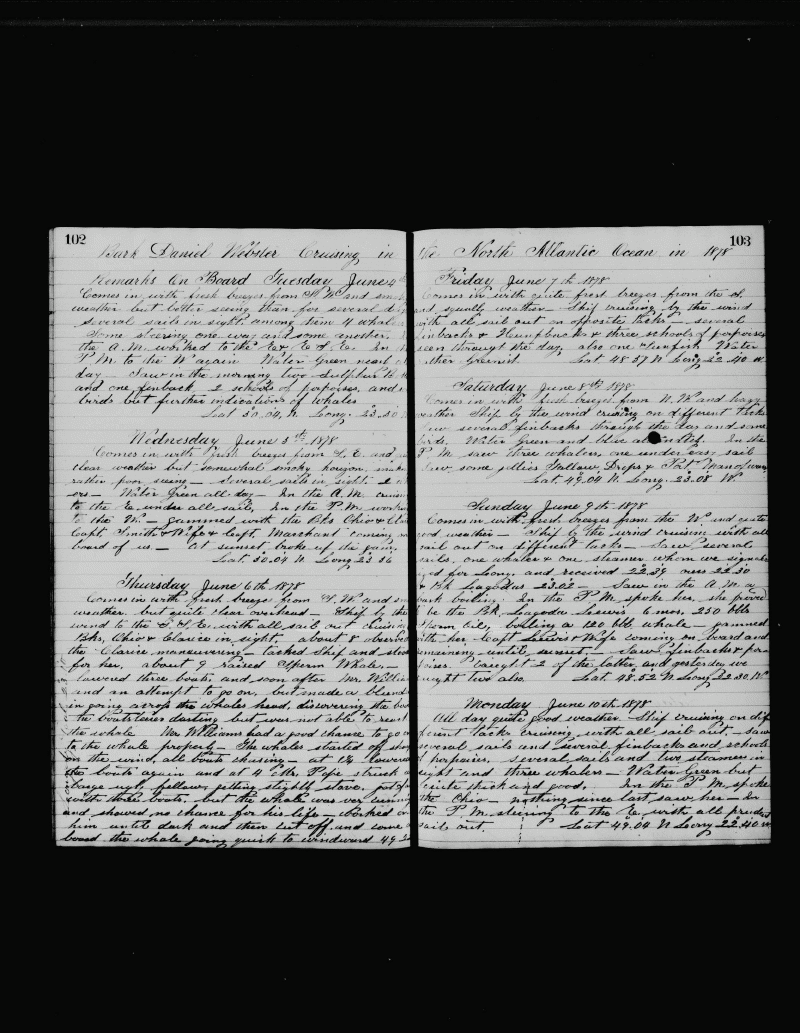 102
Bark Daniel Webster Cruising in
Remarks On Board Tuesday June 4th
Comes in with fresh breezes from N W and
weather but better seeing than for several
several sails in sight, among them 4 whalers
Some steering one way and some another. In
the A.M. worked to the E & E S E. In
P.M. to the W again Water green most of
day. Saw in the morning two Sulphur
and one finback 2 schools of porpoises, and
birds but further indications of whales
Lat 50.04 N. Long. 23.50
Wednesday June 5th 1878
Comes in with fresh breezes from S. E. and
clear weather but somewhat smoky horizon, make
rather poor seeing — several sails in sight 2
Water Green all day — In the A.M. cruising
to the E. under all sail, In the P.M. worked
to the W. — Gammed with the Bks Ohio &
Capt. Smith & Wife & Capt. Marchant coming on
board of us. — At sunset broke up the gam,
Lat. 50.04 N Long 23 56
Thursday June 6th 1878
Comes in with fresh breezes from S. W and
weather, but quite clear overhead — Ship by the
wind to the S. S. E. with all sail out cruising
Bks, Ohio & Clarice in sight. about 8 observed
the Clarice manoeuvering — tacked Ship and stood
for her, about 9 raised Sperm Whales, —
lowered three boats, and soon after Mr. Williams
and an attempt to go on, but made a blunder
in going across the whales head, discovering the boat
the boatsteerer darting but was not able to reach
the whale Mr Williams had a good chance to go on
to the whale properly — The whales started off
on the wind, all boats chasing — at 12 lowered
the boats again and at 4 clk, Pepie struck a
large ugly fellow, getting slightly stove, got fast
with three boats, but the whale was very cunning
and showed no chance for his life — worked on
him until dark and then cut off, and come a
board the whale going quick to windward 49
103
the North Atlantic Ocean in 1878
Friday June 7th 1878
Comes in with quite fresh breezes from the
and squally weather — Ship cruising by the wind
with all sail out on opposite tacks — several
finbacks & Humpbacks & three schools of porpoises
seen through the day, also one Sunfish Water
rather Greenish. Lat 48 57 N Long 22 40 W
Saturday June 8th 1878
Comes in with fresh breezes from N. W and hazy
weather Ship by the wind cruising on different tacks
Saw several finbacks through the day and some
birds, Water Green and blue alternately. In the
P M saw three whalers, one under easy sail
Saw some jellies Swallow Drops & Port Manofwar
Lat, 49.04 N. Long. 23.08 W.
Sunday June 9th 1878
Comes in with fresh breezes from the W and quite
good weather — Ship by the wind cruising with all
sail out on different tacks — Saw several
sails, one whaler & one steamer whom we signal-
ized for Long, and received 22.39 ours 22.30
& Bk Lagodas 23.02 — Saw in the A. M. a
bark boiling. In the P.M. spoke her, she proved
to be the Bk, Lagoda Lewis 6 mos, 250 bbls
Sperm Oil, boiling a 120 bbl whale — gammed
with her Capt Lewis & Wife coming on board and
remaining until sunset — Saw finbacks & por-
poises. Caught 2 of the latter, and yesterday we
caught two also. Lat. 48.52 N Long 22.30 W
Monday June 10th 1878
All day quite good weather. Ship cruising on dif-
ferent tacks cruising with all sail out. — Saw
several sails and several finbacks and schools
of porpoises, several sails and two steamers in
sight and three whalers — Water Green but
quite thick and good, In the P M. spoke
the Ohio — nothing since last saw her — In
the P M. steering to the E with all prudent
sail out. Lat 49.04 N Long 22.40 W